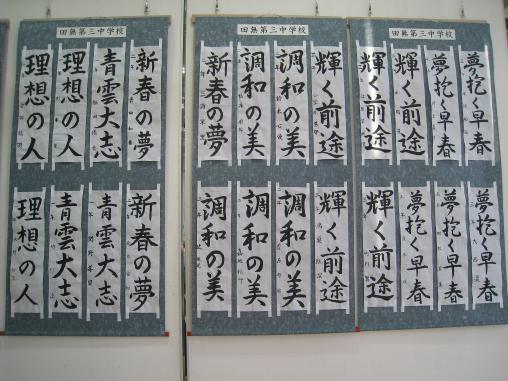 田無第三中学校
夢抱く早春
夢抱く早春
輝く前途
輝く前途
夢抱く早春
夢抱く早春
夢抱く早春
輝く前途
田無第三中学校
輝く前途
調和の美
調和の美
新春の夢
輝く前途
調和の美
調和の美
調和の美
田無第三中学校
新春の夢
青雲大志
理想の人
理想の人
新春の夢
青雲大志
青雲大志
理想の人